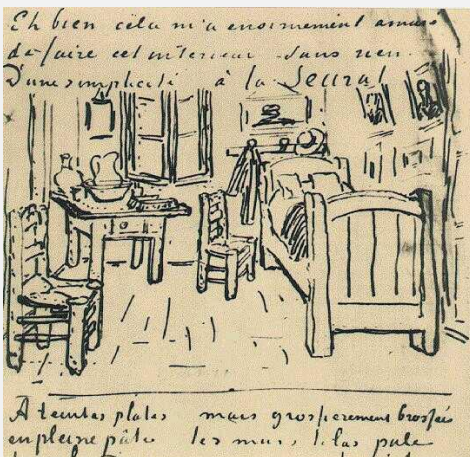 Eh bien cela m'a enormement amusé
de faire cet interieur sans rien.
D'une simplicité à la Seurat
À teintes plates mais grossierement brossées
en pleine pâte les murs lilas pale